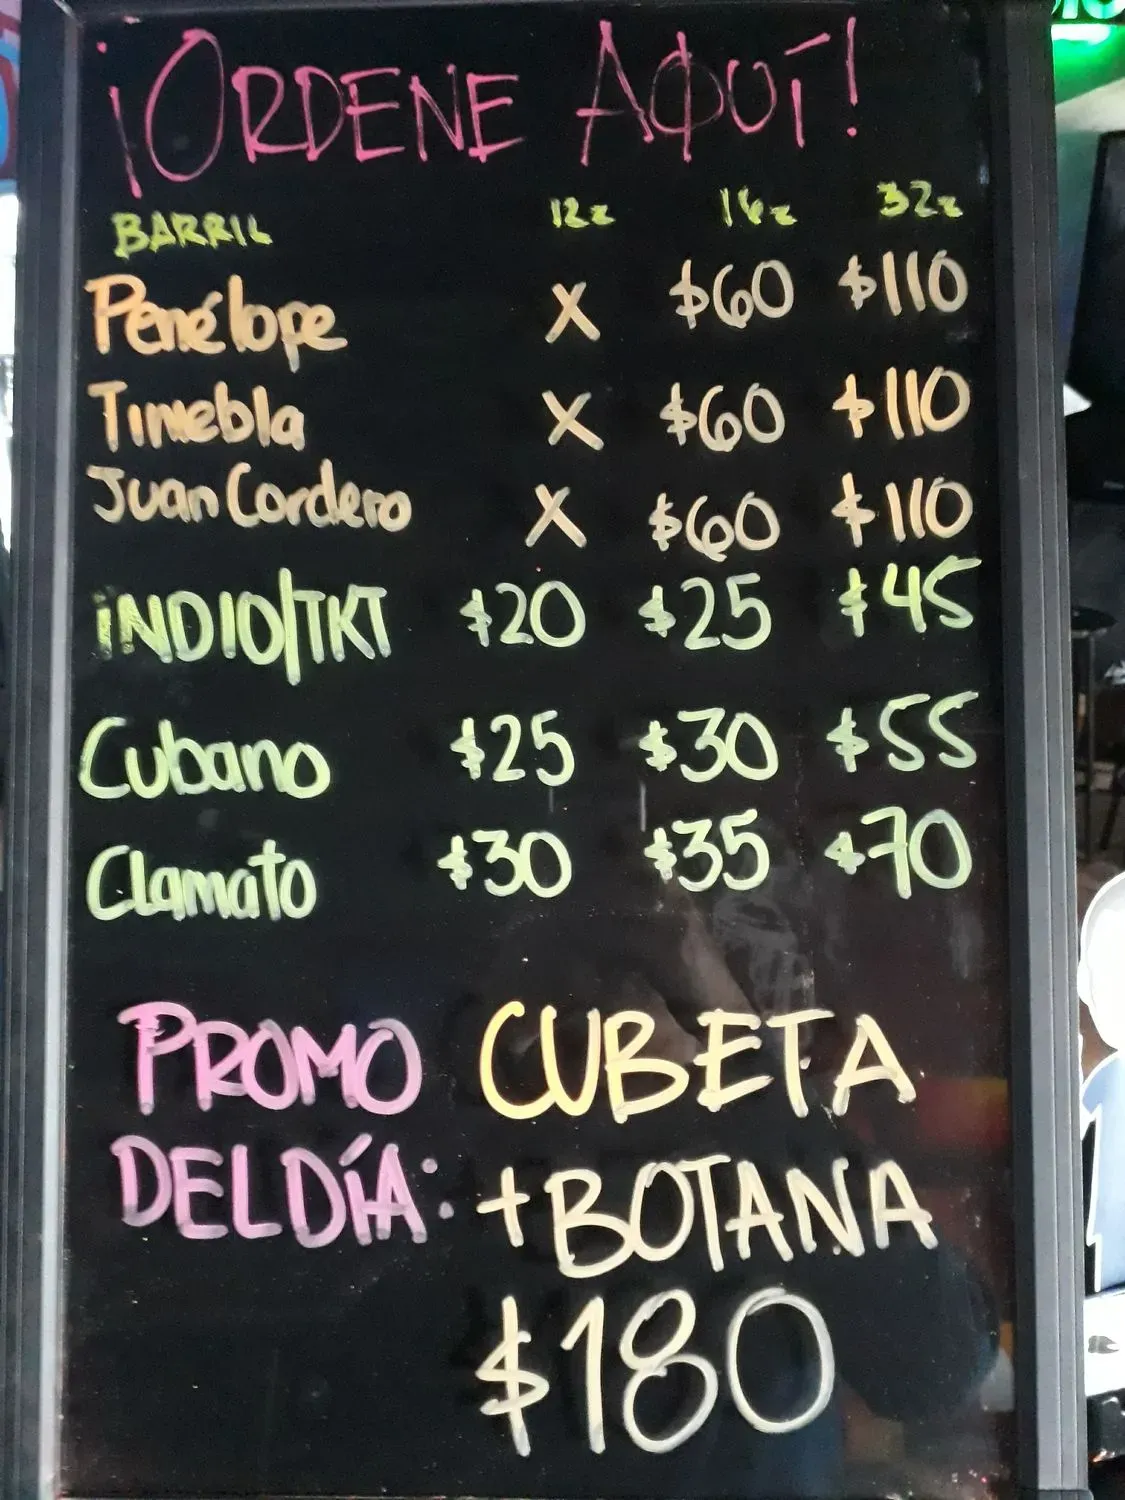 ¡ORDENE AQUÍ!
BARRIL 12z 16z 32z
Penélope X $60 $110
Timebla X $60 $110
Juan Cordero X $60 $110
INDIO/TKT $20 $25 $45
Cubano $25 $30 $55
Clamato $30 $35 $70
PROMO CUBETA
DEL DÍA: + BOTANA
$180